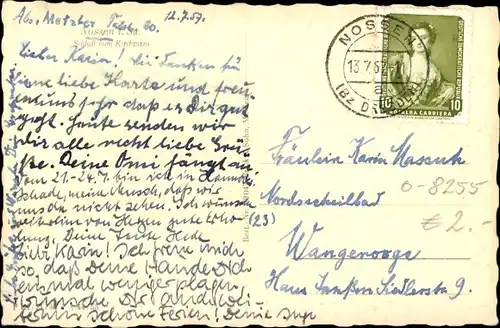 Abs. Metzler 12.7.57
Nossen i. Sa.
Schloß vom Kirchturm
Liebe Karin! Wir danken für
Deine liebe Karte und freuen
uns sehr daß es Dir gut
geht. Heute senden wir
Dir alle recht liebe Grü-
ße. Deine Omi fängt an
vom 21.-24.7. bin ich in
Schade, meine Munsch, daß wir
uns da nicht sehen. Ich wünsche
weiterhin von Herzen gute Erho-
lung, Deine Tante Hede
Liebe Karin! Ich freue mich
so, daß Deine Hände Dich
einmal weniger plagen,
wünsche Dir auch wei-
terhin schöne Ferien! Deine
NOSSEN
13.7.57
a
(BZ DRESDEN)
DEUTSCHE DEMOKRATISCHE REPUBLIK
10 ROSALBA CARRIERA 10
Fräulein Karin
Nordseeheilbad
(23)
Wangerooge
Haus Janßen Siedlerstr. 9.
0-8255
€ 2.-